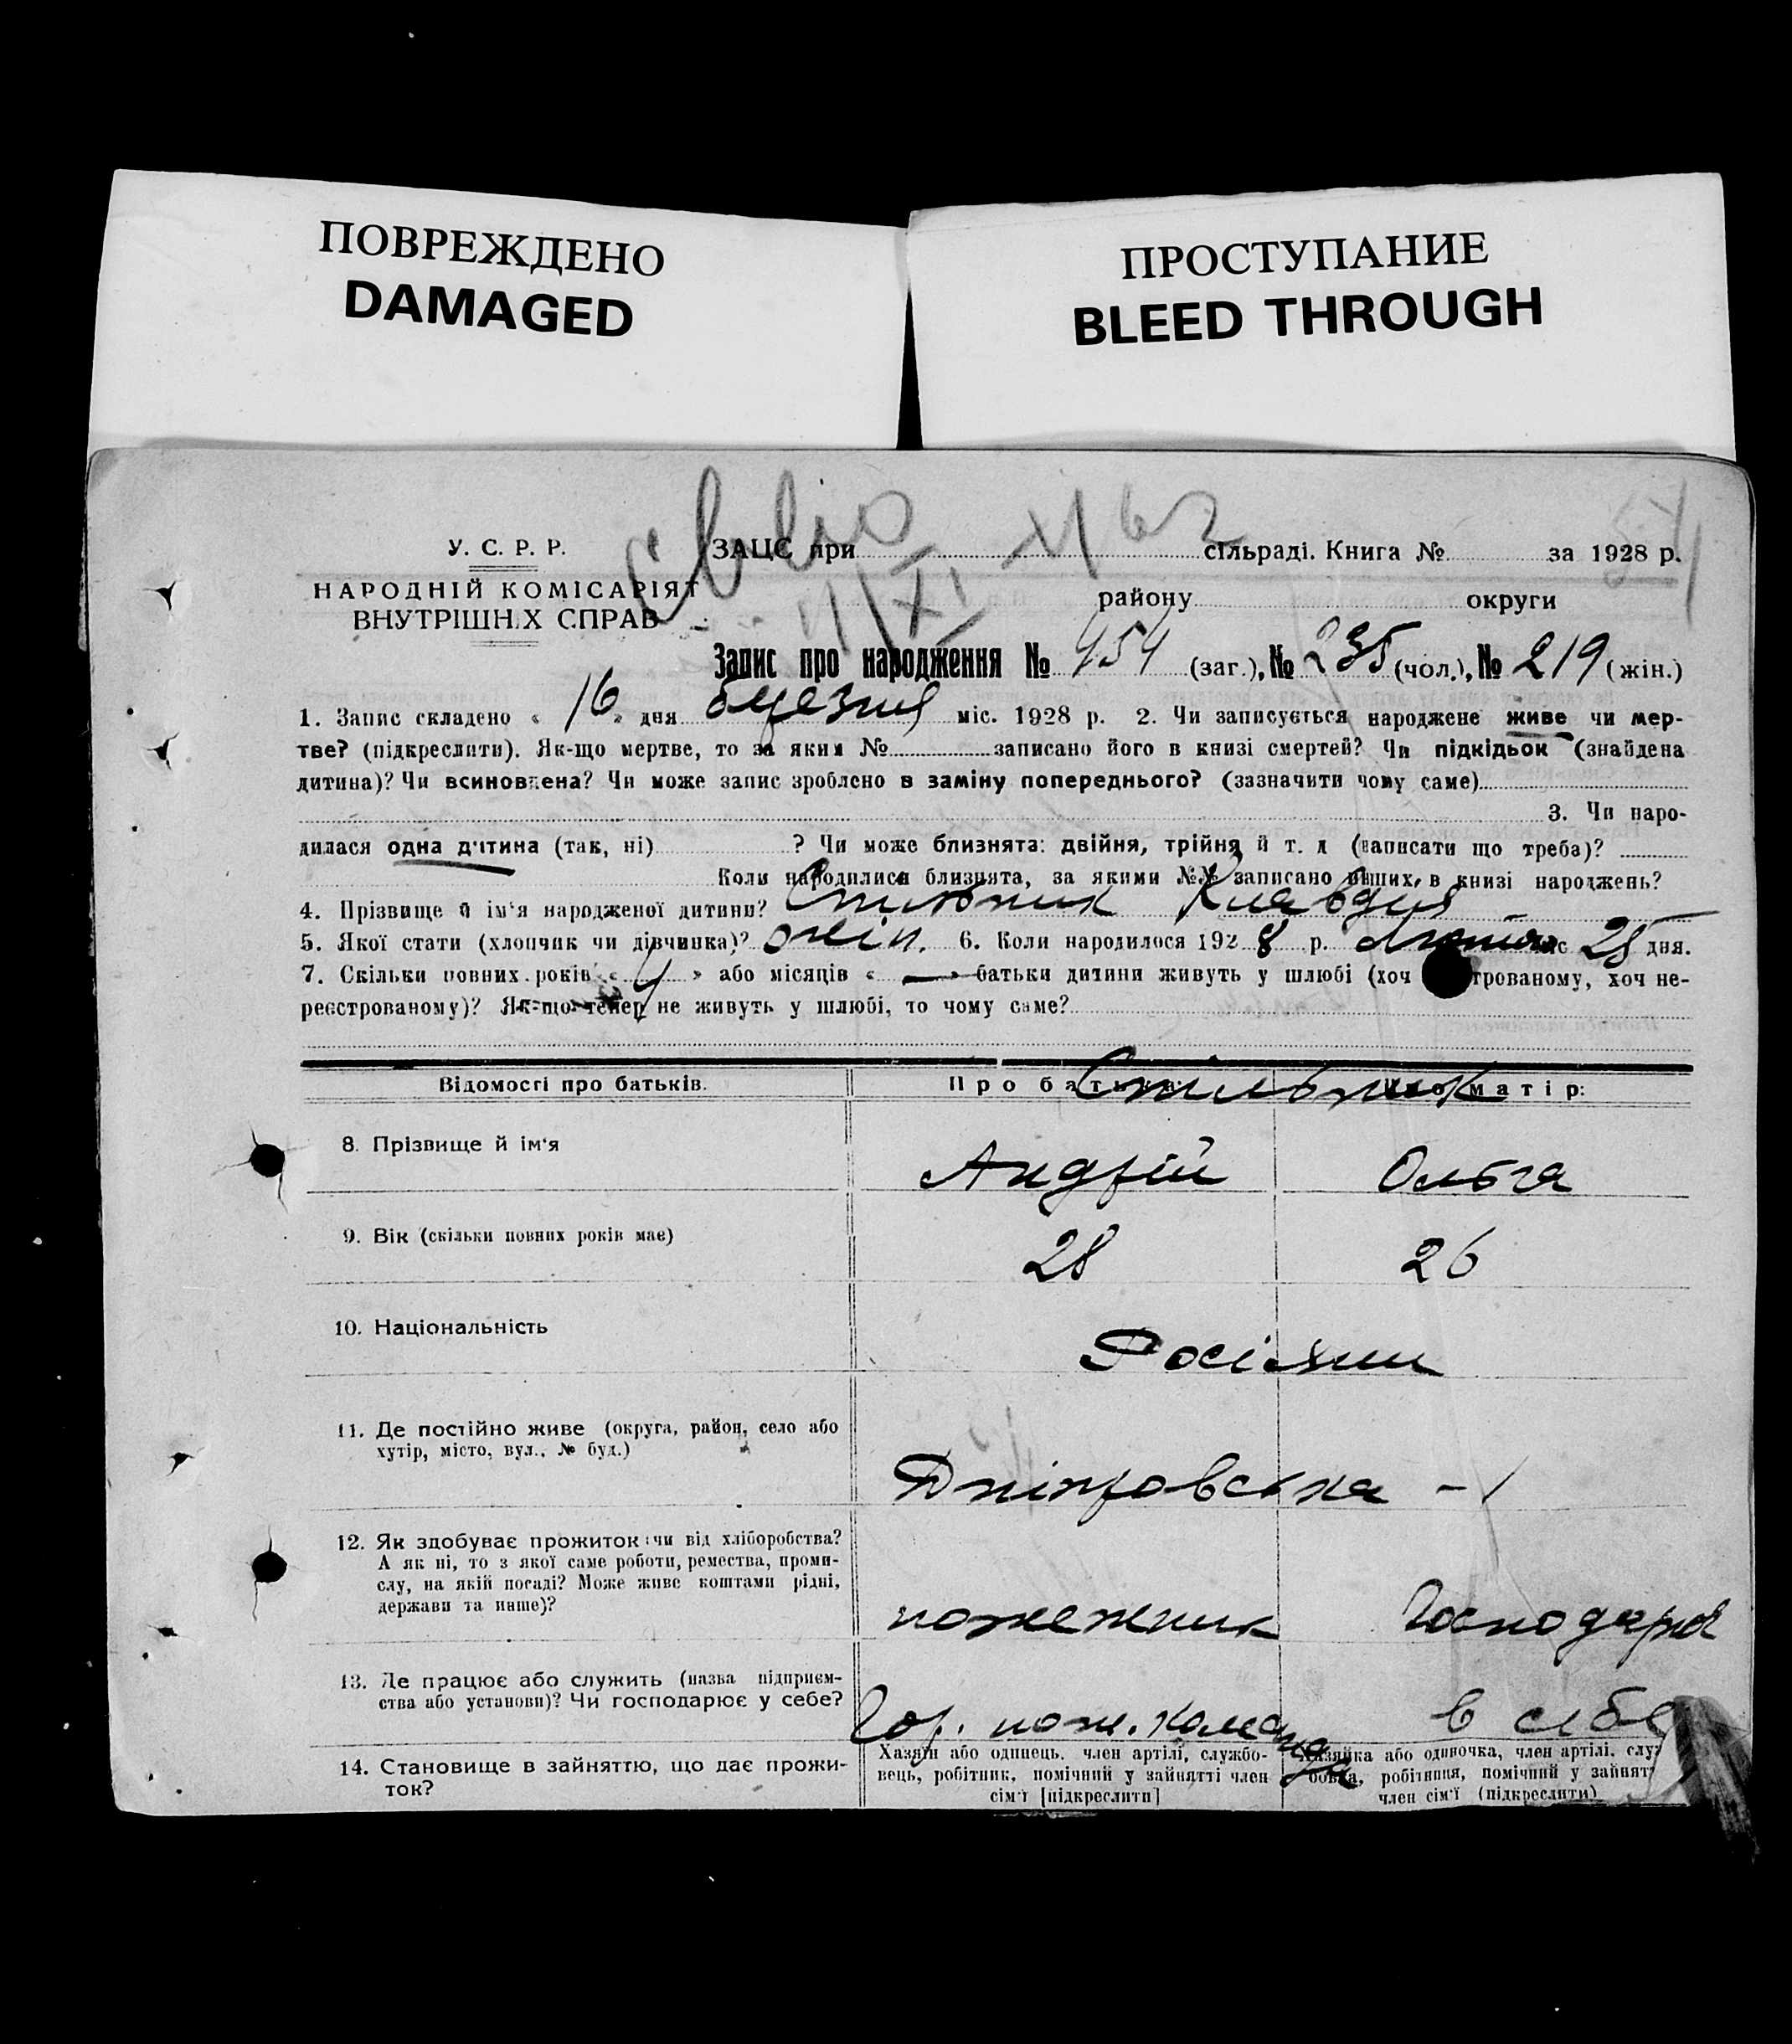 ПОВРЕЖДЕНО
DAMAGED
ПРОСТУПАНИЕ
BLEED THROUGH
У. С. Р. Р.
НАРОДНІЙ КОМІСАРІЯТ
ВНУТРІШНІХ СПРАВ
ЗАЦС при сільраді. Книга № за 1928 р.
району округи
Запис про народження № 454 (заг.), № 235 (чол.), № 219 (жін.)
1. Запис складено « 16 » дня березня міс. 1928 р. 2. Чи записується народжене живе чи мер-
тве? (підкреслити). Як-що мертве, то за яким № записано його в книзі смертей? Чи підкідьок (знайдена
дитина)? Чи всиновлена? Чи може запис зроблено в заміну попереднього? (зазначити чому саме)
3. Чи наро-
дилася одна дитина (так, ні) ? Чи може близнята: двійня, трійня й т. д (написати що треба)?
Коли народилися близнята, за якими №№ записано інших, в книзі народжень?
4. Прізвище й ім'я народженої дитини? Стильник Клавдия
5. Якої стати (хлопчик чи дівчинка)? жін. 6. Коли народилося 1928 р. Лютого міс 25 дня.
7. Скільки повних років « 4 » або місяців « — » батьки дитини живуть у шлюбі (хоч трованому, хоч не-
реєстрованому)? Як-що тепер не живуть у шлюбі, то чому саме?
Відомості про батьків. Про батька: Про матір:
Стильник
8. Прізвище й ім'я Андрій Ольга
9. Вік (скільки повних років має) 28 26
10. Національність Росіяни
11. Де постійно живе (округа, район, село або
хутір, місто, вул., № буд.)
Дніпровська - 1
12. Як здобуває прожиток: чи від хліборобства?
А як ні, то з якої саме роботи, ремества, проми-
слу, на якій посаді? Може живе коштами рідні,
держави та инше)?
пожежник Господарює
13. Де працює або служить (назва підприєм-
ства або установи)? Чи господарює у себе?
Гор. пож. команда в себе
14. Становище в зайняттю, що дає прожи-
ток?
Хазяїн або одинець, член артілі, службо-
вець, робітник, помічний у зайнятті член
сім'ї [підкреслити]
Хазяйка або одиночка, член артілі, служ
бовка, робітниця, помічний у зайнят
член сім'ї (підкреслити)